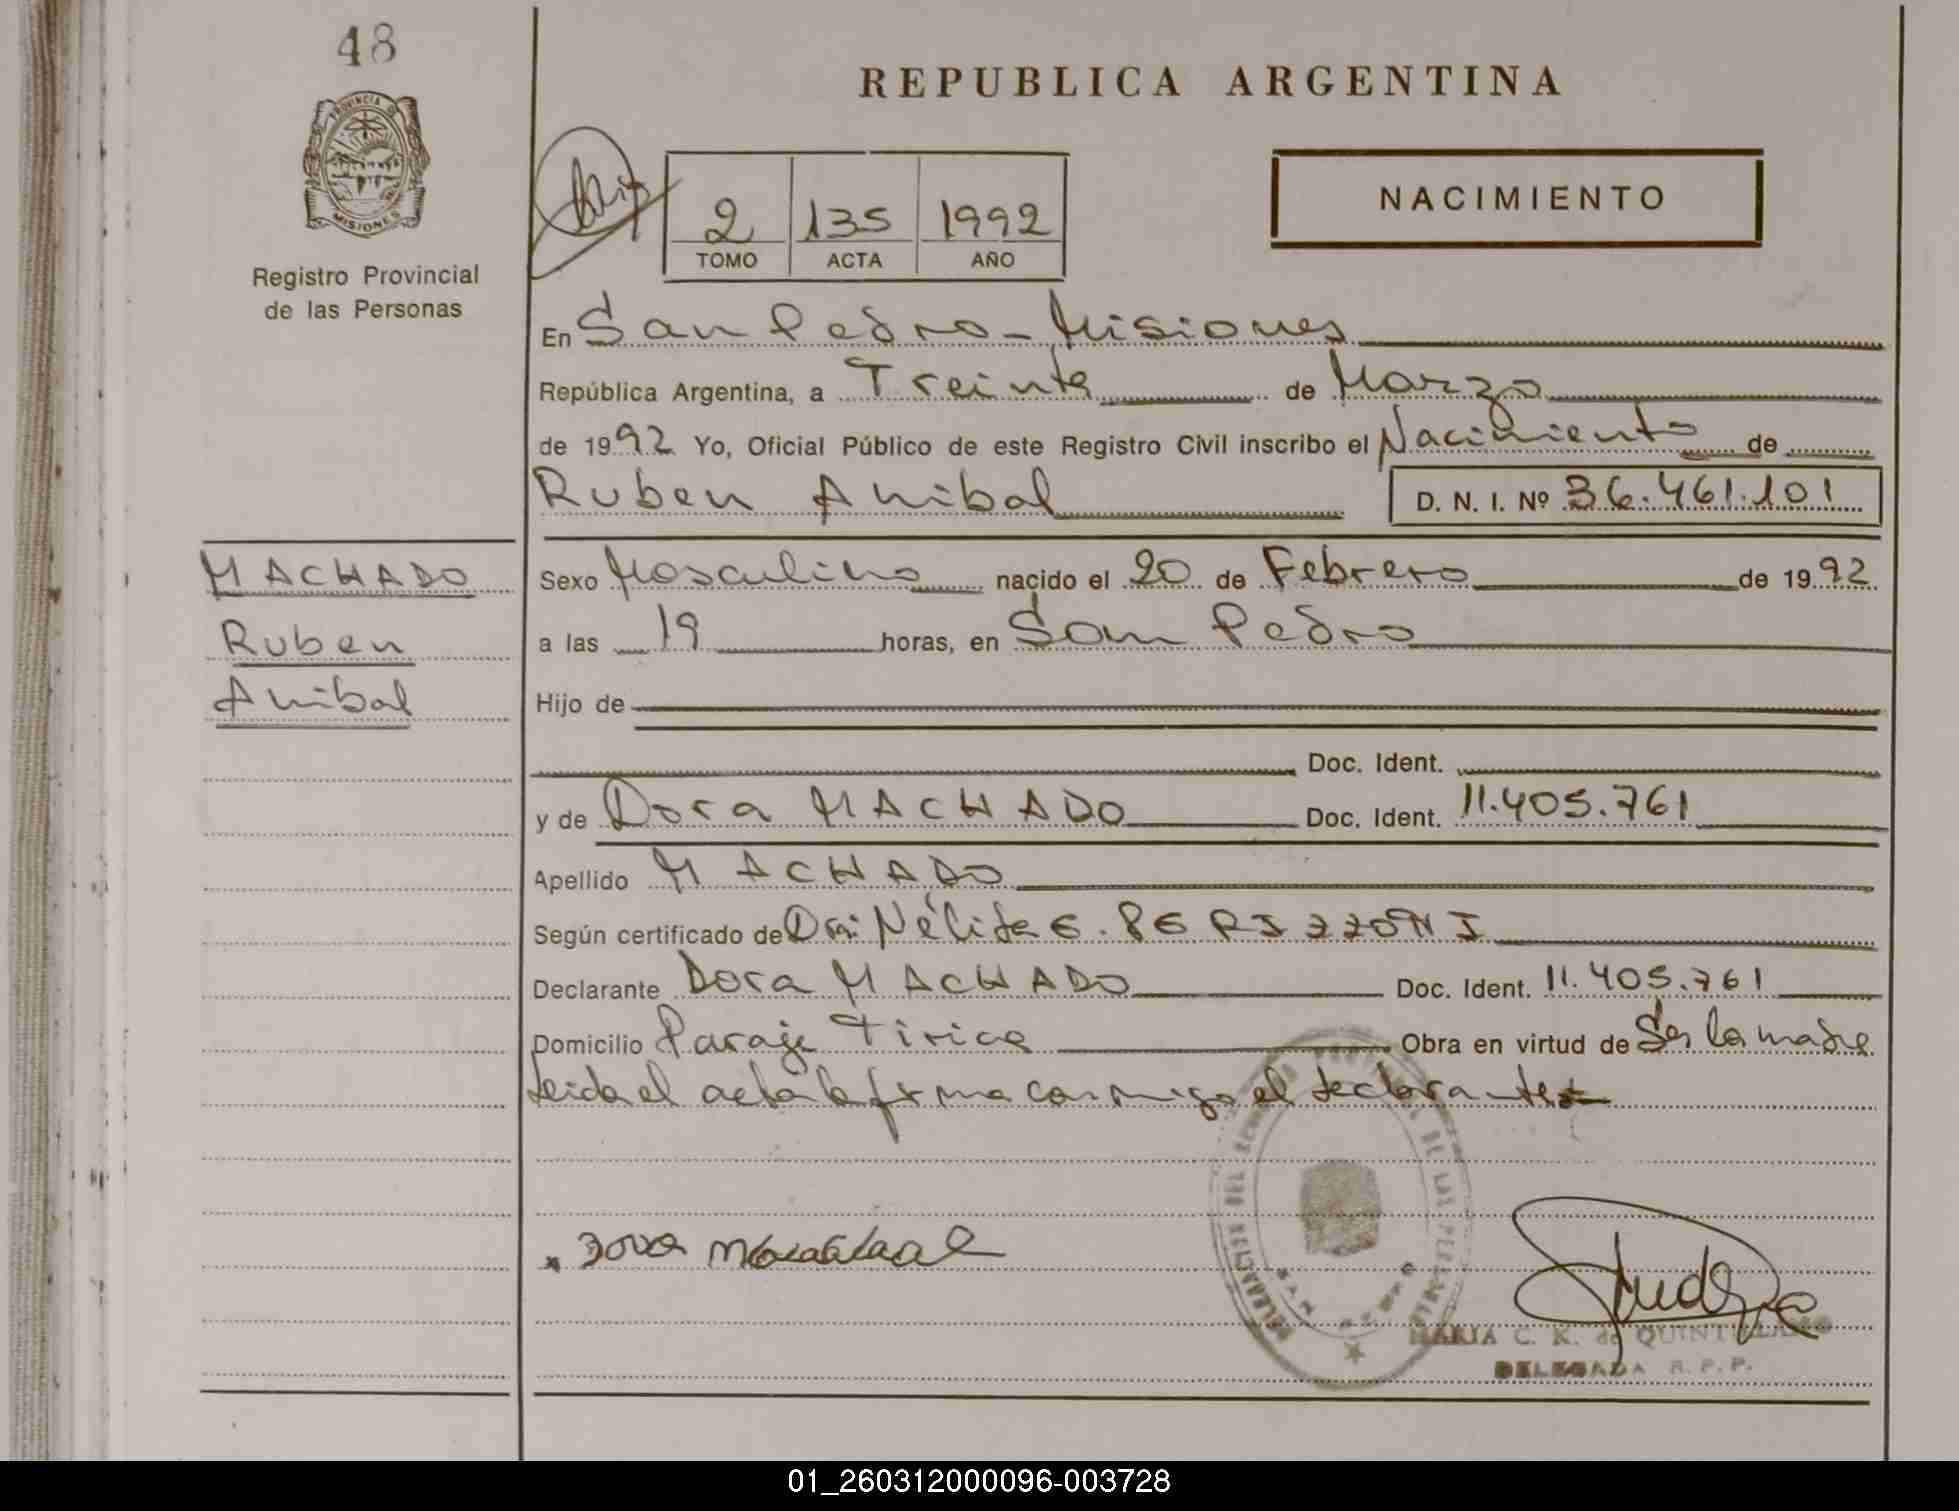 48
PROVINCIA DE
MISIONES
Registro Provincial
de las Personas
REPUBLICA ARGENTINA
2 135 1992
TOMO ACTA AÑO
NACIMIENTO
En San Pedro - Misiones
República Argentina, a Treinta de Marzo
de 1992 Yo, Oficial Público de este Registro Civil inscribo el Nacimiento de
Ruben Anibal D. N. I. Nº 36.461.101
MACHADO
Ruben
Anibal
Sexo Masculino nacido el 20 de Febrero de 1992
a las 19 horas, en San Pedro
Hijo de
Doc. Ident.
y de Dora MACHADO Doc. Ident. 11.405.761
Apellido MACHADO
Según certificado de Dra. Nélida E. PERIZZONI
Declarante Dora MACHADO Doc. Ident. 11.405.761
Domicilio Paraje Tirica Obra en virtud de Ser la madre
Leida el acta la firma conmigo el declarante
DELEGACION DEL REGISTRO PROVINCIAL DE LAS PERSONAS
SAN PEDRO
MARIA C. K. de QUINTULLANO
DELEGADA R. P. P.
01_260312000096-003728